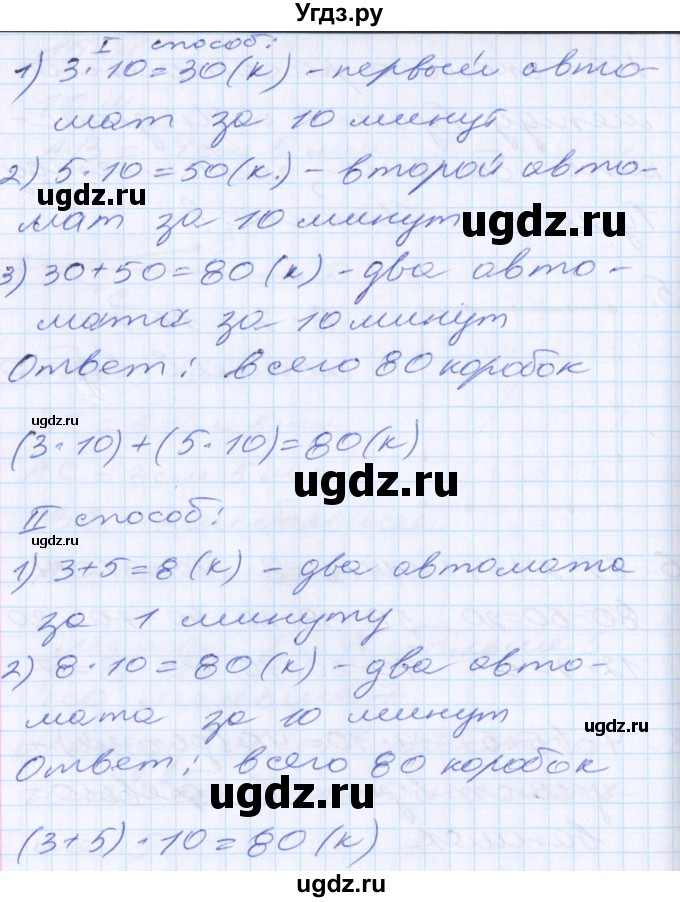 Угдз.ру
I способ:
1) 3·10=30(к) - первый авто-
мат за 10 минут
2) 5·10=50(к.) - второй авто-
ugdz.ru
ugdz.ru
мат за 10 минут
3) 30+50=80(к) - два авто-
мата за 10 минут
Ответ: всего 80 коробок
ugdz.ru
(3·10)+(5·10)=80(к)
ugdz.ru
II способ:
ugdz.ru
1) 3+5=8(к) - два автомата
за 1 минуту
2) 8·10=80(к) - два авто-
мата за 10 минут
ugdz.ru
Ответ: всего 80 коробок
ugdz.ru
(3+5)·10=80(к)
ugdz.ru